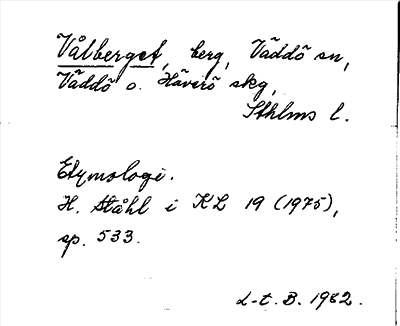 Vålberget, berg, Väddö sn,
Väddö o. Häverö skg,
Sthlms l.
Etymologi.
H. Ståhl i KL 19 (1975),
sp. 533.
L-t. B. 1982.